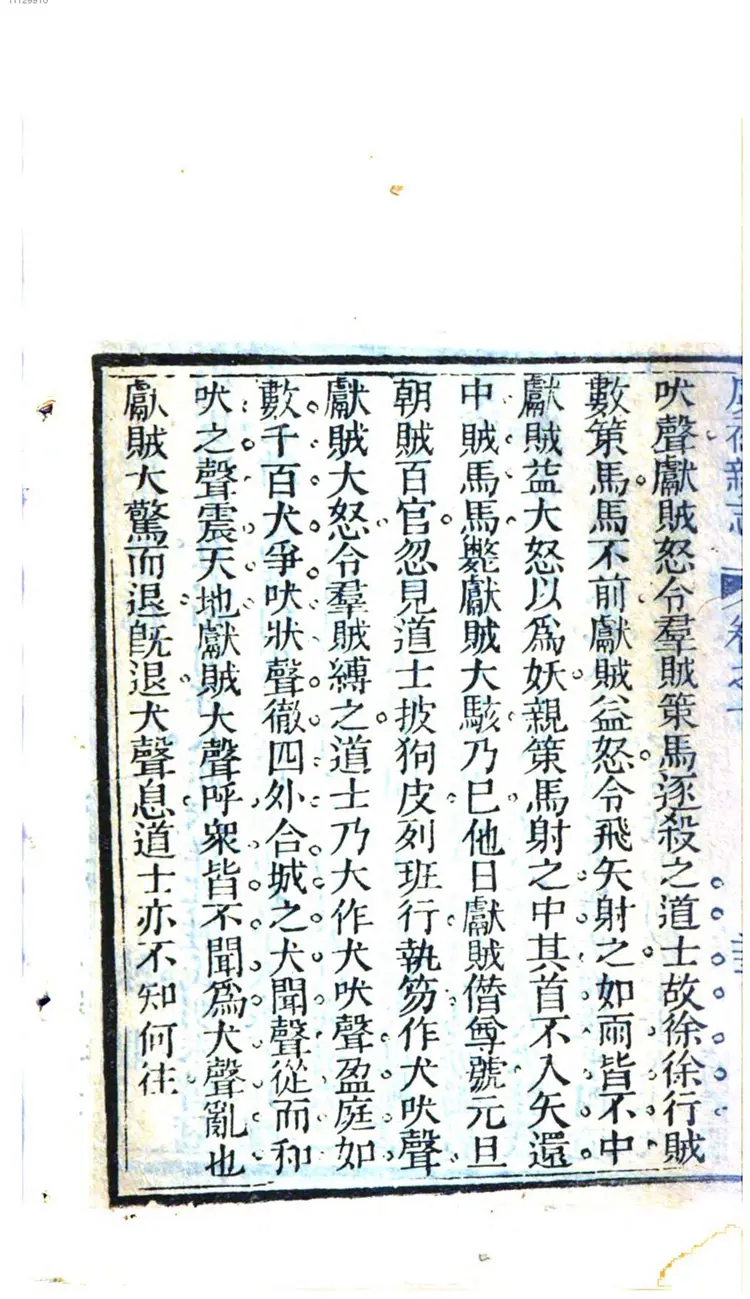 吠聲獻賊怒令羣賊策馬逐殺之道士故徐徐行賊
數策馬馬不前獻賊益怒令飛矢射之如雨皆不中
獻賊益大怒以爲妖親策馬射之中其首不入矢還
中賊馬馬斃獻賊大駭乃已他日獻賊僭尊號元旦
朝賊百官忽見道士披狗皮列班行執笏作犬吠聲
獻賊大怒令羣賊縛之道士乃大作犬吠聲盈庭如
數千百犬爭吠狀聲徹四外合城之犬聞聲從而和
吠之聲震天地獻賊大聲呼衆皆不聞爲犬聲亂也
獻賊大驚而退旣退犬聲息道士亦不知何往